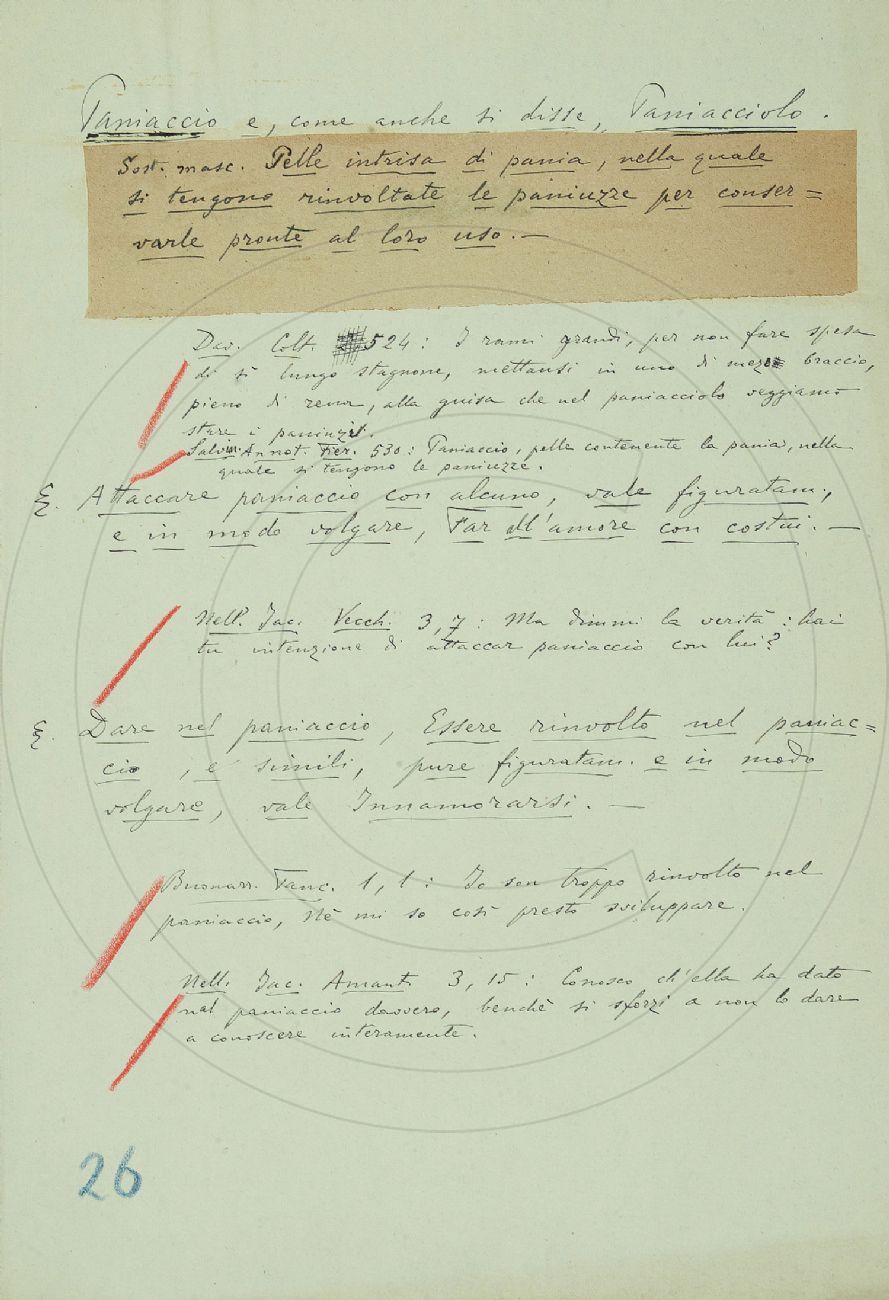 Paniaccio e, come anche si disse, Paniacciolo.
Sost. masc. Pelle intrisa di pania, nella quale
si tengono rinvoltate le paniuzze per conser=
varle pronte al loro uso. —
Dav. Colt. 524: I rami grandi, per non fare spesa
di sì lungo stagnone, mettansi in uno di mezzo braccio,
pieno di rena, alla guisa che nel paniacciolo veggiamo
stare i paniuzzi.
Salvin. Annot. Fier. 530: Paniaccio, pelle contenente la pania, nella
quale si tengono le paniuzze.
§. Attaccare paniaccio con alcuno, vale figuratam.,
e in modo volgare, Far all'amore con costui. —
Nell. Jac. Vecch. 3, 7: Ma dimmi la verità: hai
tu intenzione di attaccar paniaccio con lui?
§. Dare nel paniaccio, Essere rinvolto nel paniac=
cio, e simili, pure figuratam. e in modo
volgare, vale Innamorarsi. —
Buonarr. Tanc. 1, 1: Io son troppo rinvolto nel
paniaccio, Nè mi so così presto sviluppare.
Nell. Jac. Amant. 3, 15: Conosco ch'ella ha dato
nel paniaccio davvero, benchè si sforzi a non lo dare
a conoscere interamente.
26